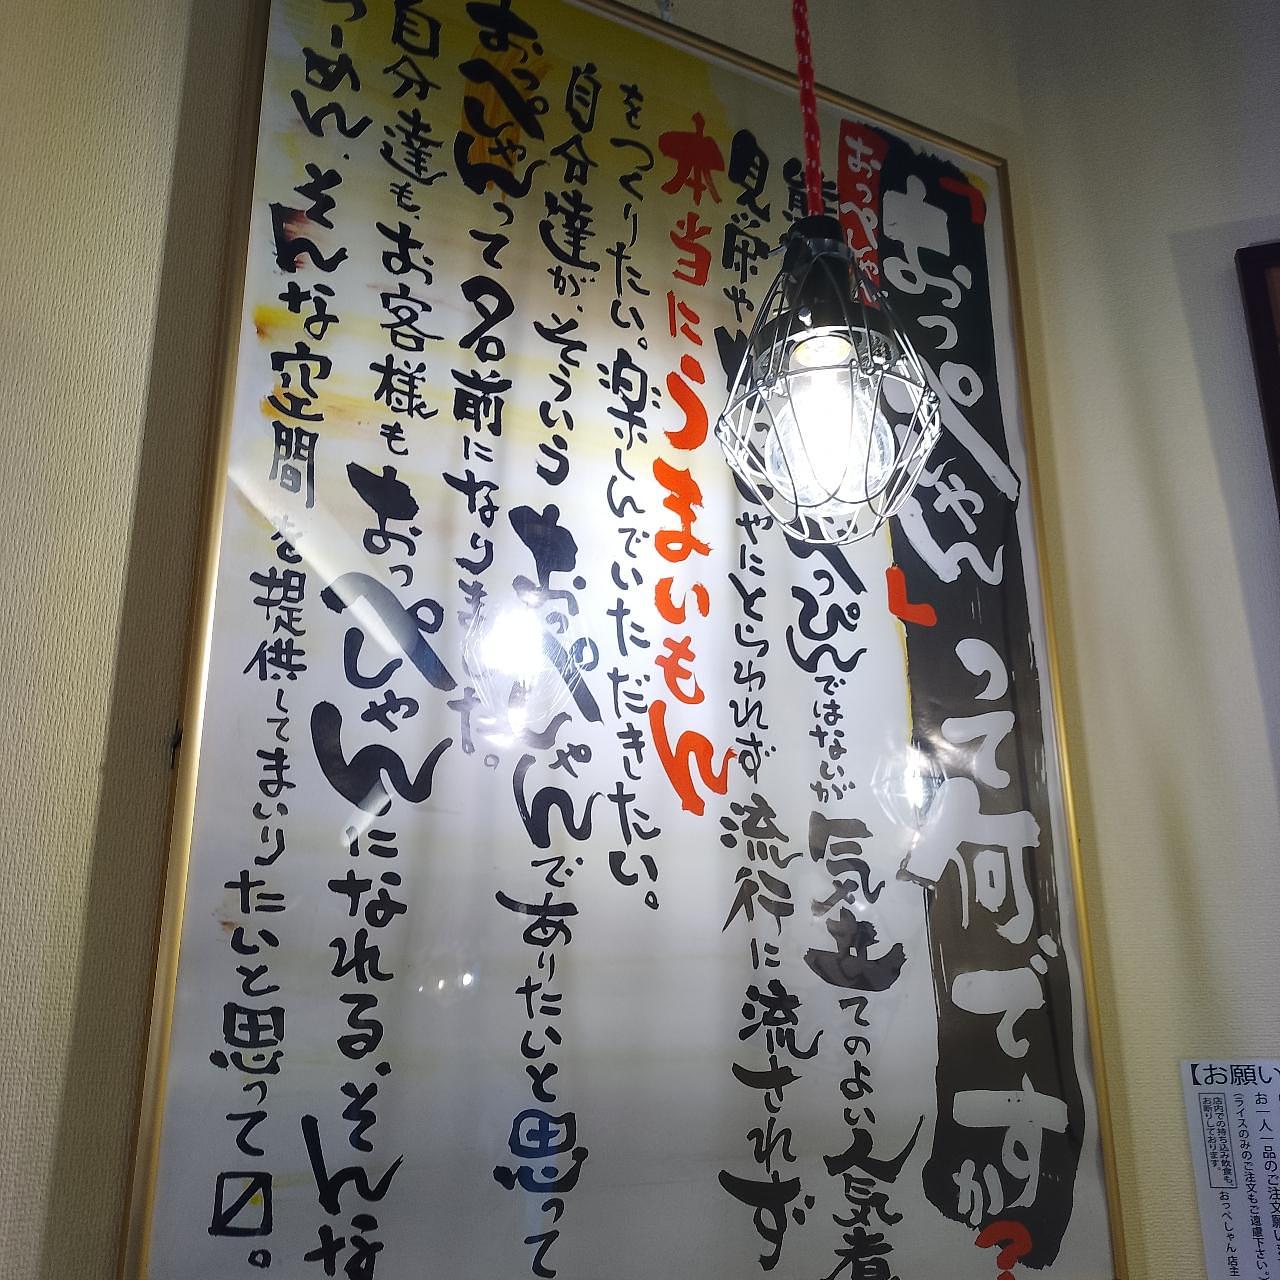 「おっぺしゃん」って何ですか?
おっぺしゃん
熊
っぴんではないが気立てのよい人気者
見栄や
やにとらわれず流行に流されず
本当にうまいもん
をつくりたい。楽しんでいただきたい。
自分達が、そういうおっぺしゃんでありたいと思って
おっぺしゃんって名前になりました。
自分達も、お客様もおっぺしゃんになれる、そんな
らーめん、そんな空間を提供してまいりたいと思って〼。
【お願い
お一人一品のご注文願い
(ライスのみのご注文もご遠慮下さい。
店内での持ち込み飲食も、
お断りしております。
おっぺしゃん 店主